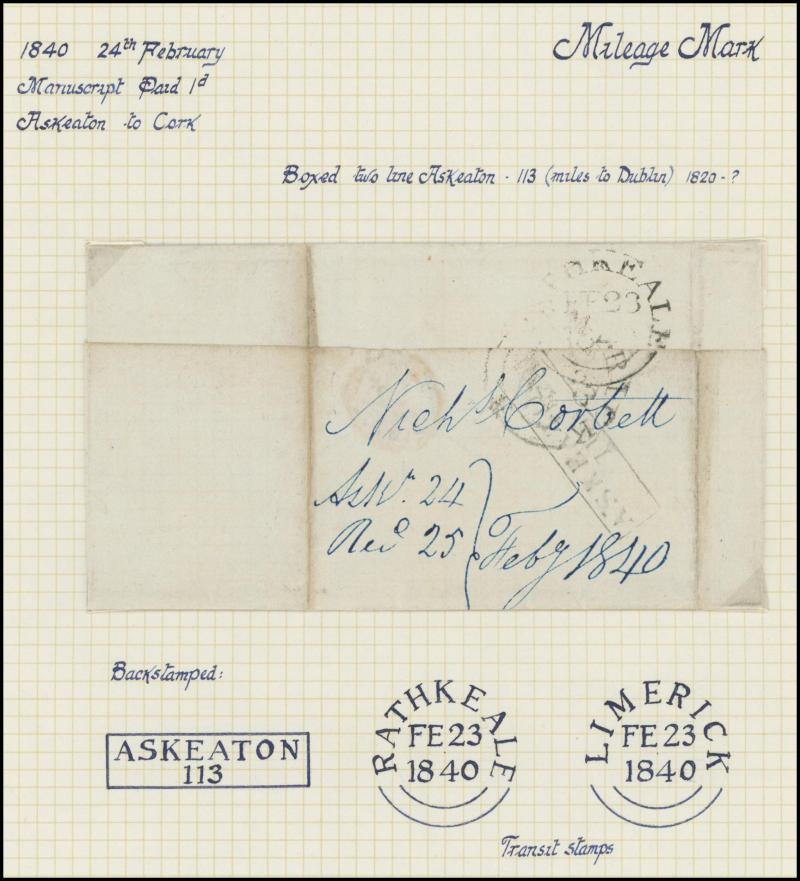 1840 24th February
Mileage Mark
Manuscript Paid 1d
Askeaton to Cork
Boxed two line Askeaton - 113 (miles to Dublin) 1820 - ?
KEALE
FE 23
Nichs Corbett
ASKE
Askn. 24
Recd 25
Feby 1840
Backstamped:
ASKEATON
113
RATHKEALE
FE 23
1840
LIMERICK
FE 23
1840
Transit stamps